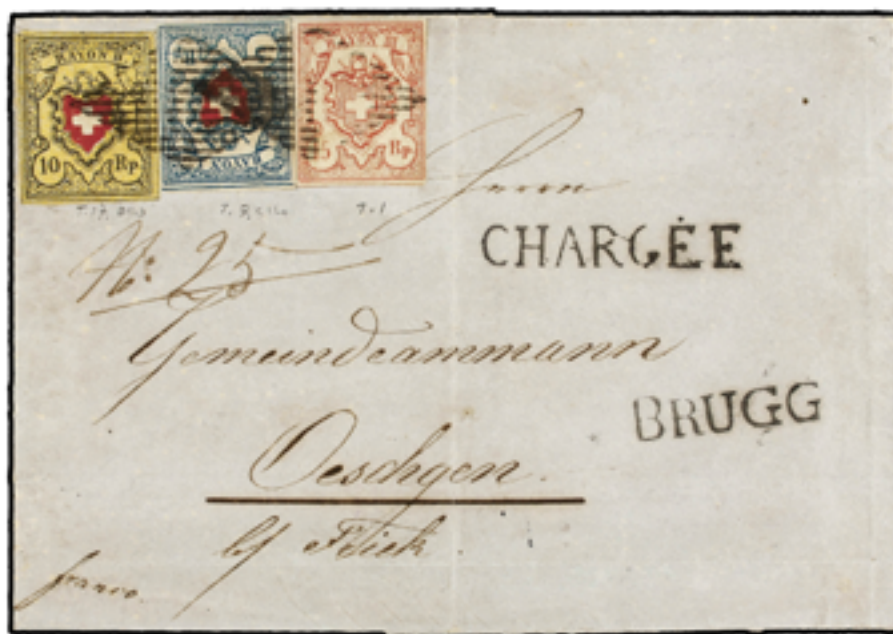 RAYON II
10 Rp
RAYON I
5 Rp
T.1
Herrn
CHARGÉE
No: 25
Gemeindeammann
BRUGG
Oeschgen.
by Frick
franco.